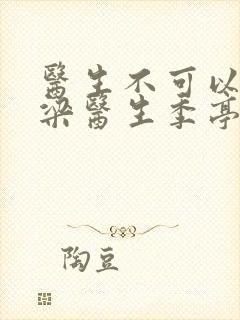 醫生不可以
梁醫生季亭
陶豆